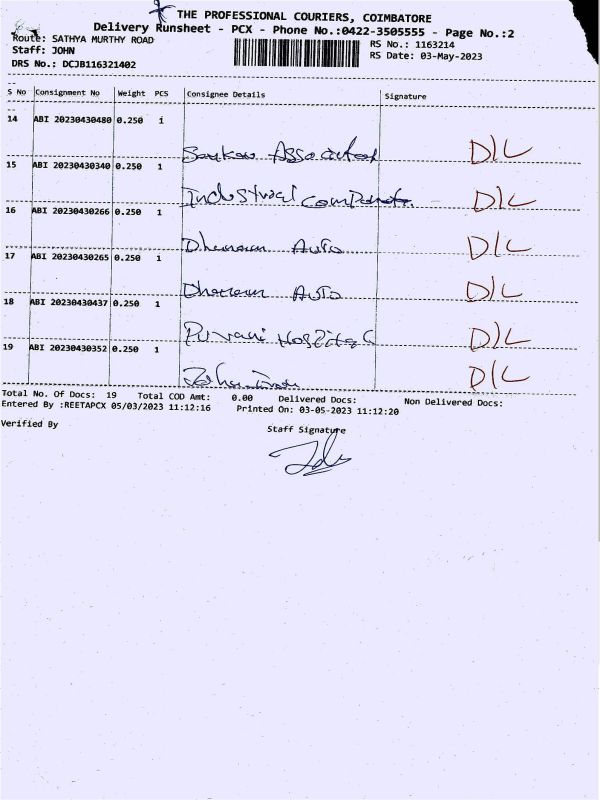 THE PROFESSIONAL COURIERS, COIMBATORE
Delivery Runsheet - PCX - Phone No.:0422-3505555 - Page No.:2
Route: SATHYA MURTHY ROAD
RS No.: 1163214
Staff: JOHN
RS Date: 03-May-2023
DRS No.: DCJB116321402
S No Consignment No Weight PCS Consignee Details Signature
14 ABI 20230430480 0.250 1
Associates D/L
15 ABI 20230430340 0.250 1
Industrial Components D/L
16 ABI 20230430266 0.250 1
Auto D/L
17 ABI 20230430265 0.250 1
Auto D/L
18 ABI 20230430437 0.250 1
Hospital D/L
19 ABI 20230430352 0.250 1
D/L
Total No. Of Docs: 19 Total COD Amt: 0.00 Delivered Docs: Non Delivered Docs:
Entered By :REETAPCX 05/03/2023 11:12:16 Printed On: 03-05-2023 11:12:20
Verified By Staff Signature